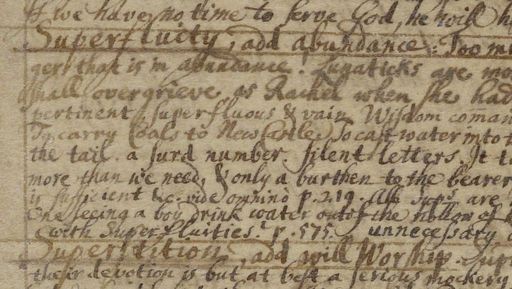 If we have no time to serve God, he will h
Superfluety, add abundance: Too mu
gers that is in abundance. Lunaticks are mo
shall overgrieve as Rachel when she had
pertinent, superfluous & vain. Wisdom coman
To carry Coals to NewCastle, To cast water into t
the tail. a surd number silent letters. It is
more than we need, & only a burthen to the bearer
is sufficient &c. vide p. 219. All are
One seeing a boy drink water out of the hollow of h
with Superfluities. p. 575. unnecessary
Superstition, add will Worship. Sup
their devotion is but at best a serious mockery